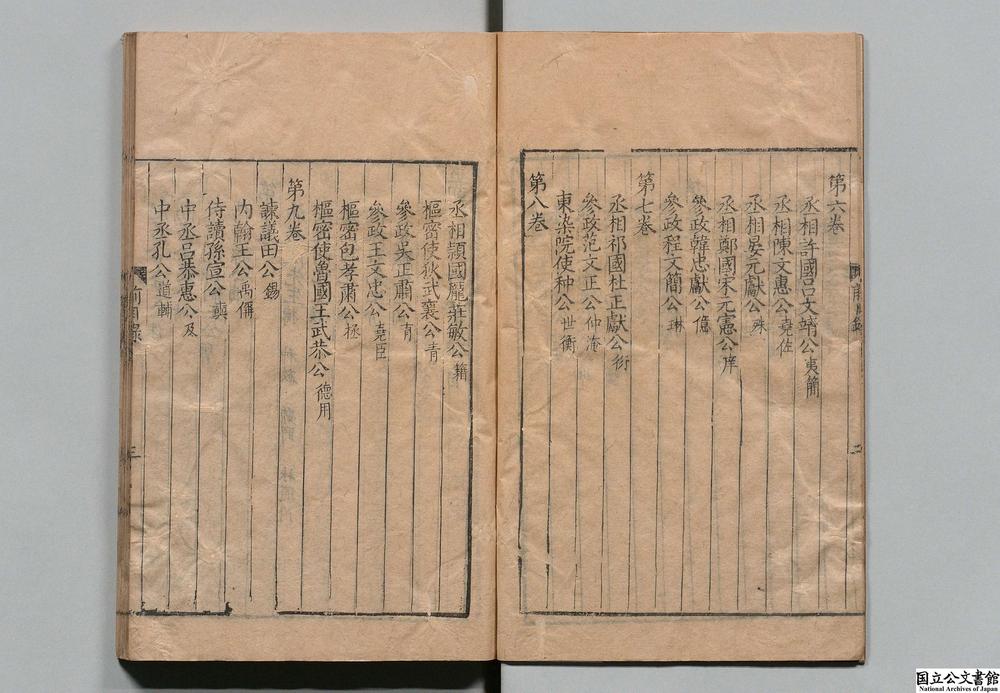 第六卷
丞相許國呂文靖公夷簡
丞相陳文惠公堯佐
丞相晏元獻公殊
丞相鄭國宋元憲公庠
參政韓忠獻公億
參政程文簡公琳
第七卷
丞相祁國杜正獻公衍
參政范文正公仲淹
東染院使种公世衡
第八卷
丞相頴國龐莊敏公籍
樞密使狄武襄公青
參政吳正肅公育
參政王文忠公堯臣
樞密包孝肅公拯
樞密使魯國王武恭公德用
第九卷
諫議田公錫
內翰王公禹偁
侍讀孫宣公奭
中丞呂恭惠公及
中丞孔公道輔
前目錄
三
二
国立公文書館
National Archives of Japan